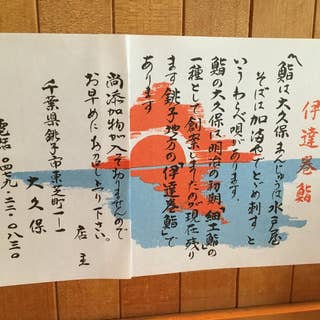 伊達巻鮨
へ鮨は大久保まんじゅうは水戸屋
そばは加満やでとゞめ刺す と
いうわらべ唄があります。
鮨の大久保は明治の初期、細工鮨の
一種として創案しましたのが現在残り
ます銚子地方の伊達巻鮨で
あります
尚添加物が入って居りませんので
お早めにお召し上り下さい。
店主
千葉県銚子市東芝町一ー一
大久保
電話〇四七九・二二・〇八三〇